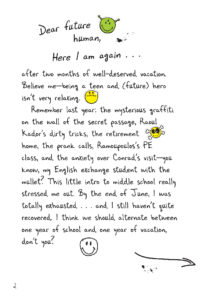 Dear future
human,
Here I am again . . .
after two months of well-deserved vacation.
Believe me—being a teen and (future) hero
isn't very relaxing.
Remember last year: the mysterious graffiti
on the wall of the secret passage, Raoul
Kador's dirty tricks, the retirement
home, the prank calls, Ramoupoulos's PE
class, and the anxiety over Conrad's visit—you
know, my English exchange student with the
mullet? This little intro to middle school really
stressed me out. By the end of June, I was
totally exhausted. . . . and, I still haven't quite
recovered. I think we should alternate between
one year of school and one year of vacation,
don't you?
2